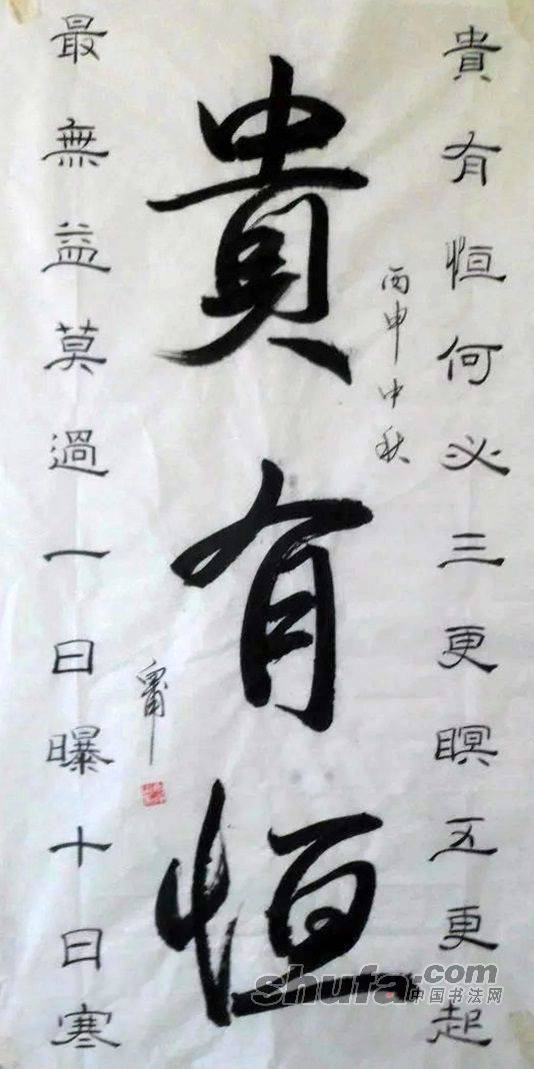 貴有恒何必三更瞑五更起
丙申中秋
貴有恒
最無益莫過一日曝十日寒
shufa.com
中国书法网